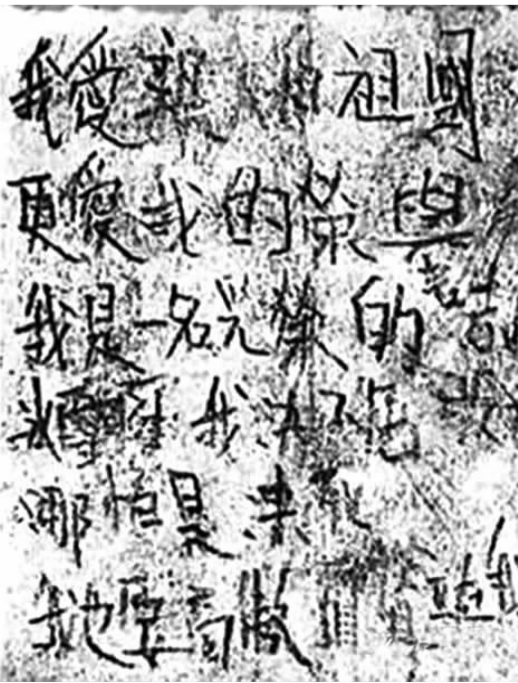 我愛親 祖國
更愛我的榮譽
我是一名光榮的志
冰雪啊 我決不屈
哪怕是凍死
我也要高傲 立我